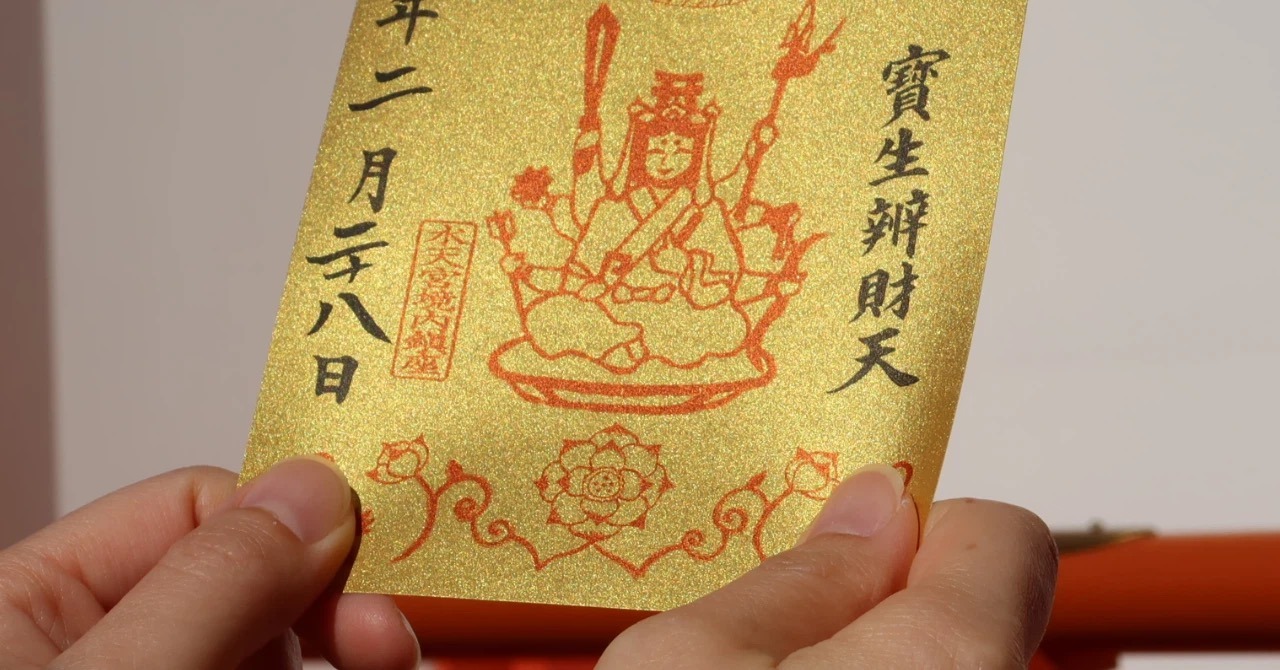 寶生辨財天
水天宮境内鎮座
年二月二十八日